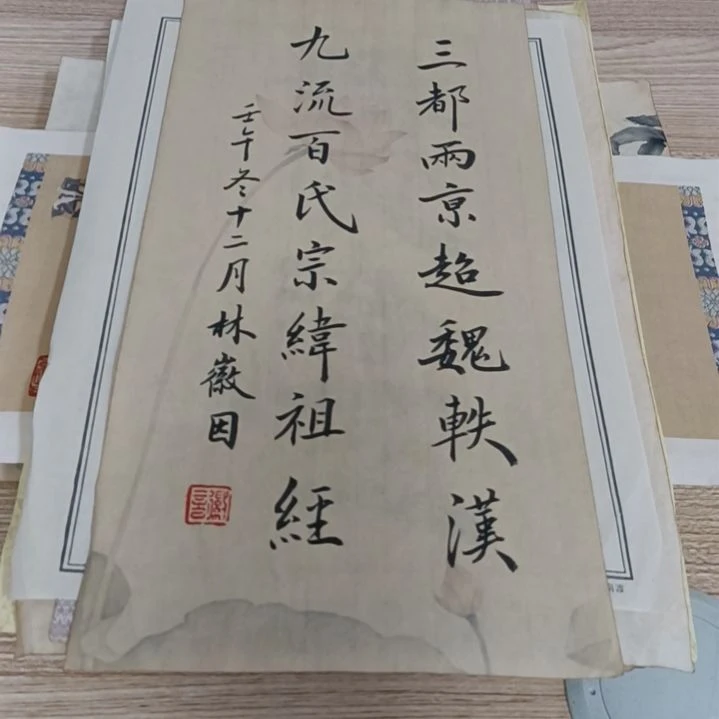 三都兩京超魏軼漢
九流百氏宗緯祖經
壬午冬十二月林徽因